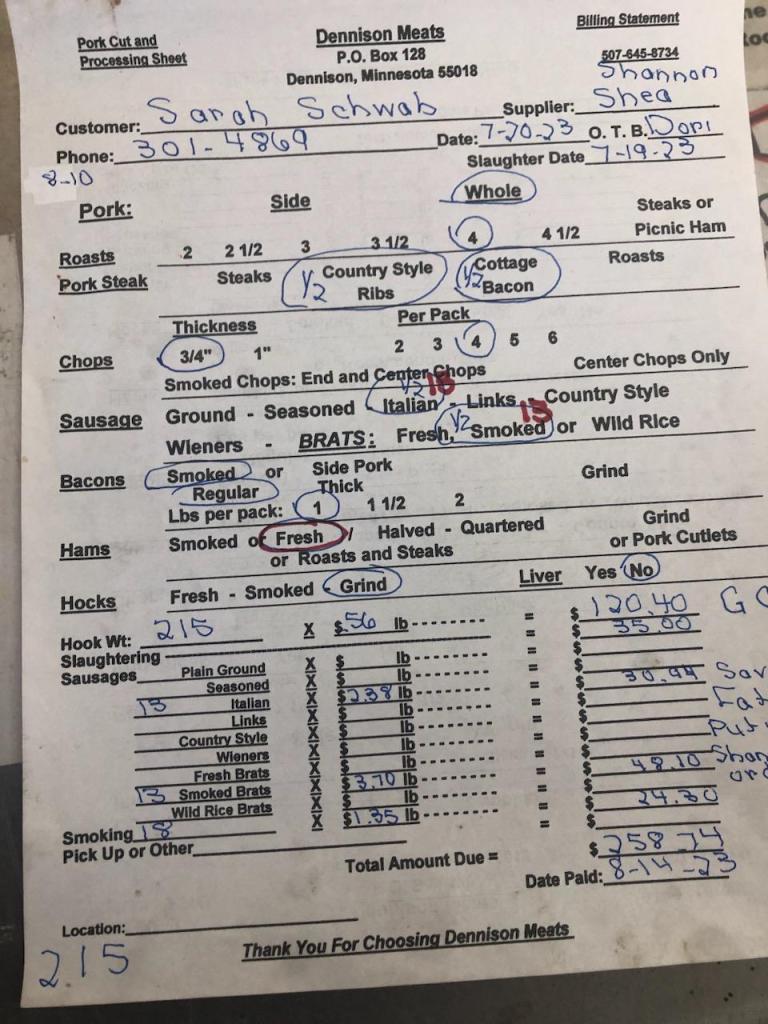 Pork Cut and
Processing Sheet
Dennison Meats
P.O. Box 128
Dennison, Minnesota 55018
Billing Statement
507-645-8734
Customer: Sarah Schwab Supplier: Shannon Shea
Phone: 301-4869 Date: 7-20-23 O. T. B. Dori
8-10 Slaughter Date 7-19-23
Pork: Side Whole
Roasts 2 2 1/2 3 3 1/2 4 4 1/2 Steaks or Picnic Ham
Pork Steak Steaks 1/2 Country Style Ribs 1/2 Cottage Bacon Roasts
Thickness Per Pack
Chops 3/4" 1" 2 3 4 5 6
Smoked Chops: End and Center Chops Center Chops Only
Sausage Ground - Seasoned - 1/2 Italian 13 - Links - Country Style
Wieners - BRATS: Fresh, 1/2 Smoked 13 or Wild Rice
Bacons Smoked or Side Pork Grind
Regular Thick
Lbs per pack: 1 1 1/2 2
Hams Smoked or Fresh / Halved - Quartered Grind
or Roasts and Steaks or Pork Cutlets
Hocks Fresh - Smoked - Grind Liver Yes No
Hook Wt: 215 X $.56 lb = $ 120.40
Slaughtering = $ 35.00
Sausages Plain Ground X $ lb = $
Seasoned X $ lb = $
13 Italian X $2.38 lb = $ 30.94
Links X $ lb = $
Country Style X $ lb = $
Wieners X $ lb = $
Fresh Brats X $ lb = $
13 Smoked Brats X $3.70 lb = $ 48.10
Wild Rice Brats X $ lb = $
Smoking 18 X $1.35 lb = $ 24.30
Pick Up or Other = $
Total Amount Due = $ 258.74
Date Paid: 8-14-23
Location:
215
Thank You For Choosing Dennison Meats